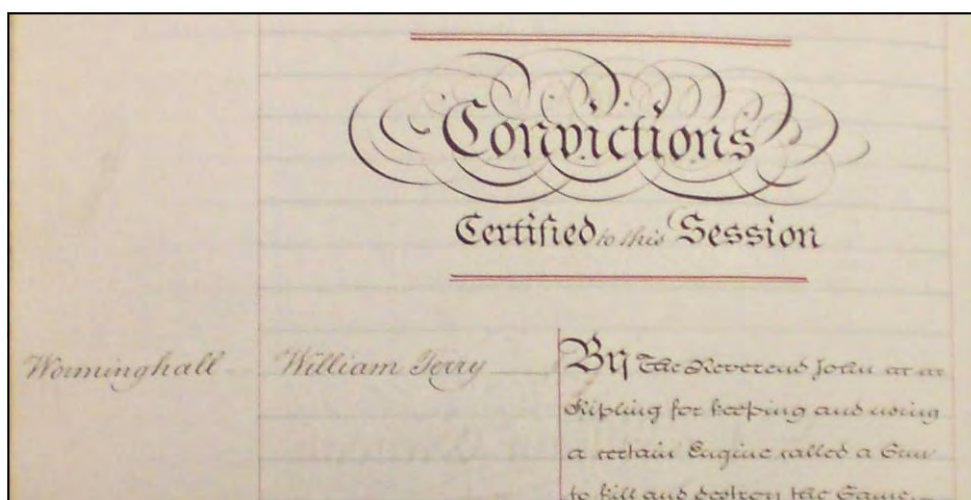 Convictions
Certified to this Session
Worminghall William Terry By The Reverend John
Kipling for keeping and using
a certain Engine called a Gun
to kill and destroy the Game